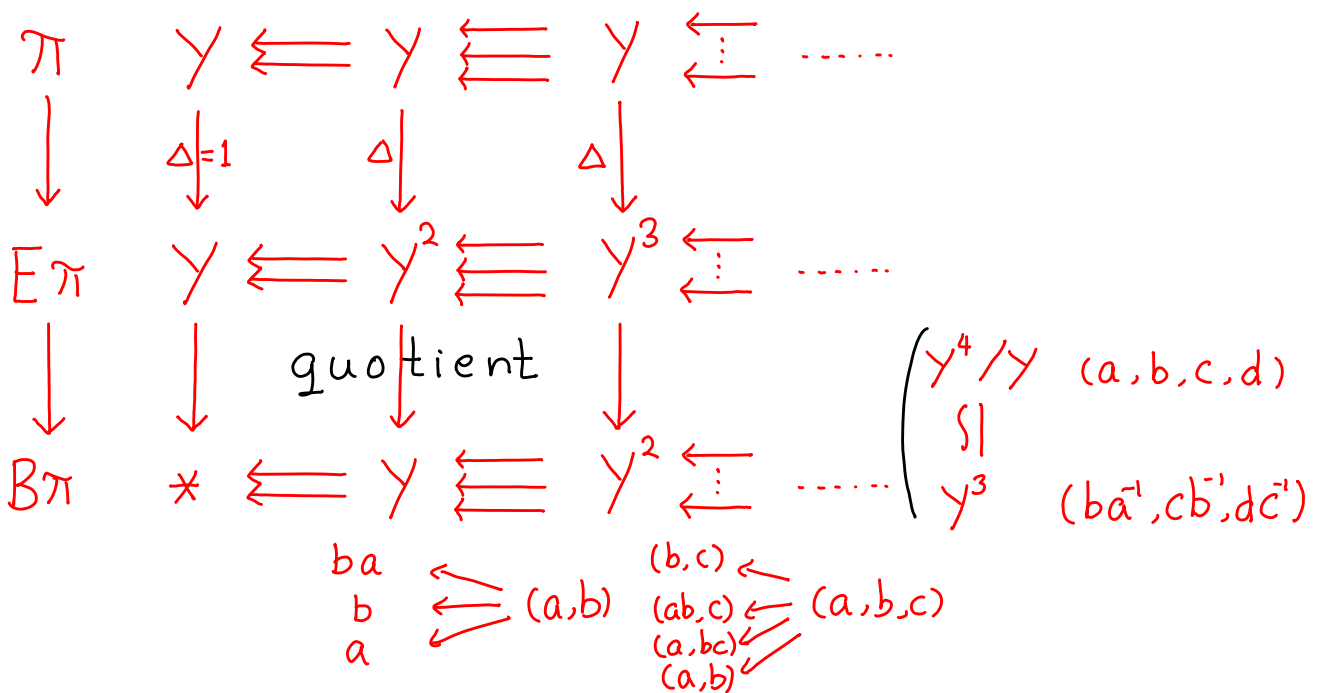 π Y Y Y ......
Δ=1 Δ Δ
Eπ Y Y² Y³ ......
quotient
Y⁴/Y (a,b,c,d)
Bπ * Y Y² ......
Y³ (ba⁻¹,cb⁻¹,dc⁻¹)
ba (b,c)
b (a,b) (ab,c) (a,b,c)
a (a,bc)
(a,b)